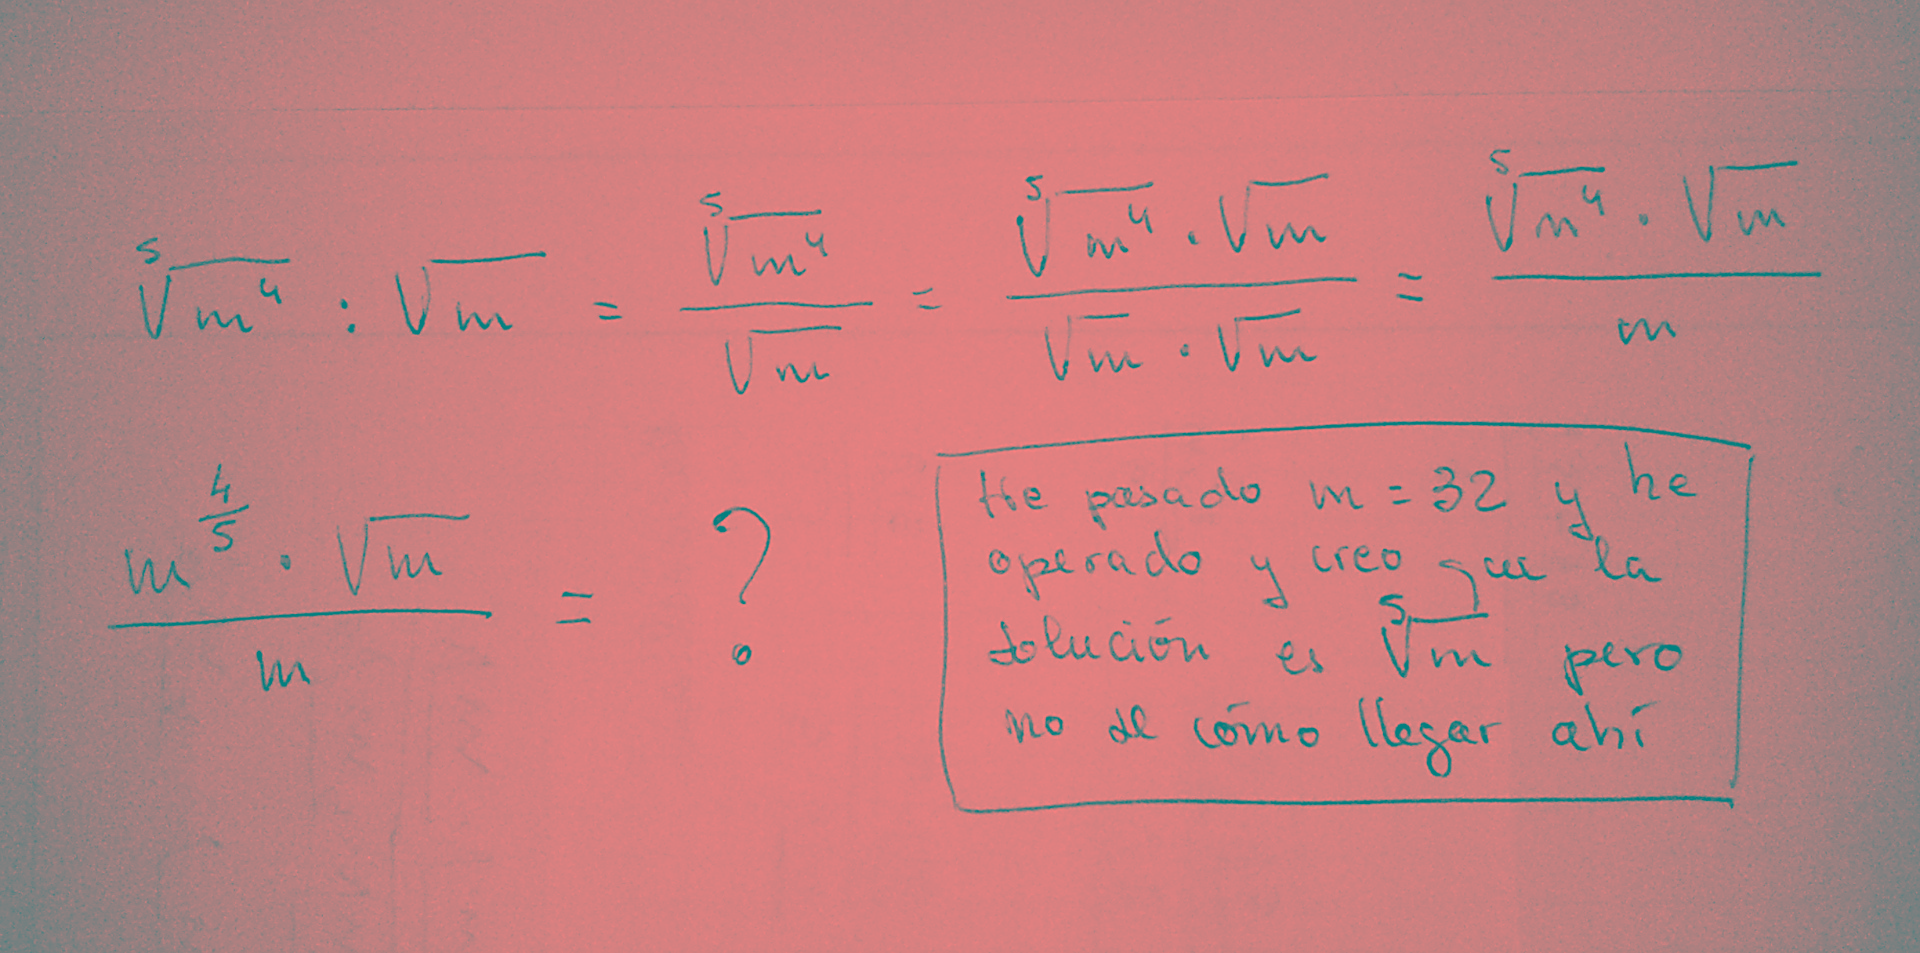 ⁵√m⁴ : √m = ⁵√m⁴ / √m = ⁵√m⁴ · √m / √m · √m = ⁵√m⁴ · √m / m
m^(4/5) · √m / m = ?
He pasado m = 32 y he
operado y creo que la
solución es ⁵√m pero
no se cómo llegar ahí